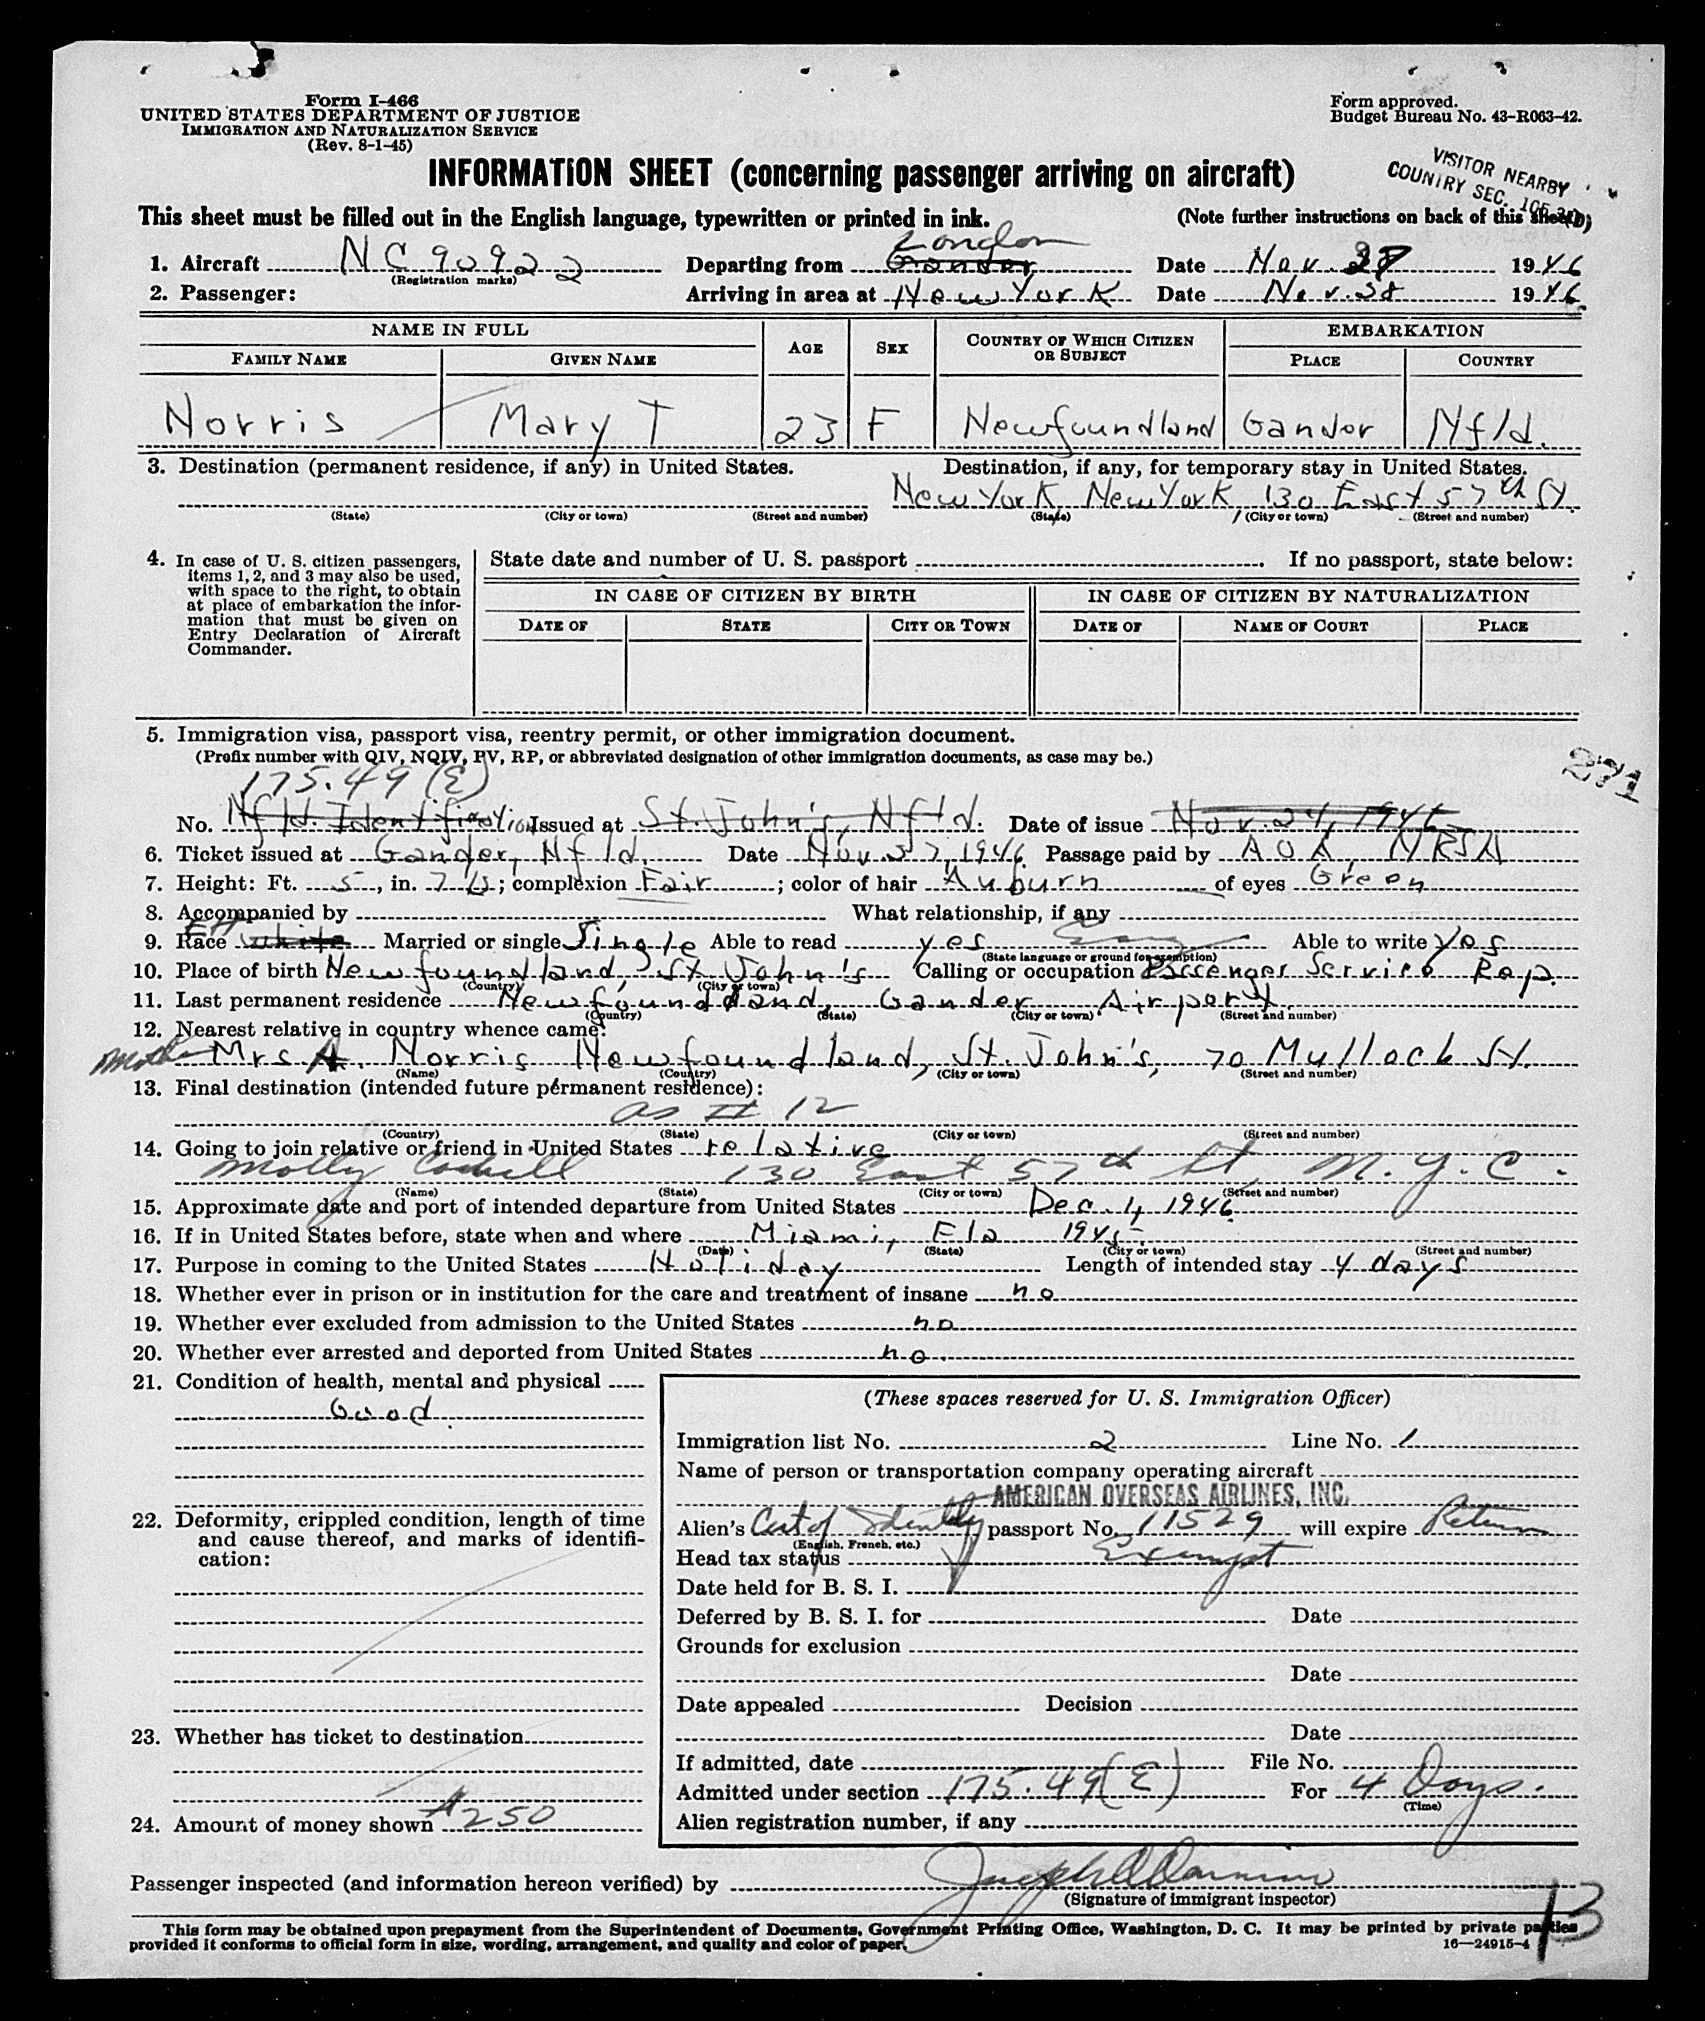 Form I-466
UNITED STATES DEPARTMENT OF JUSTICE
IMMIGRATION AND NATURALIZATION SERVICE
(Rev. 8-1-45)
Form approved.
Budget Bureau No. 43-R063-42.
INFORMATION SHEET (concerning passenger arriving on aircraft)
VISITOR NEARBY
COUNTRY SEC.
This sheet must be filled out in the English language, typewritten or printed in ink. (Note further instructions on back of this sheet)
London
1. Aircraft NC 90922 Departing from Gander Date Nov. 1946
(Registration marks)
2. Passenger: Arriving in area at New York Date Nov. 28 1946
NAME IN FULL AGE SEX COUNTRY OF WHICH CITIZEN OR SUBJECT EMBARKATION
FAMILY NAME GIVEN NAME PLACE COUNTRY
Norris Mary T 23 F Newfoundland Gander Nfld.
3. Destination (permanent residence, if any) in United States. Destination, if any, for temporary stay in United States.
New York, New York, 130 East 57th St.
(State) (City or town) (Street and number) (State) (City or town) (Street and number)
4. In case of U. S. citizen passengers, items 1, 2, and 3 may also be used, with space to the right, to obtain at place of embarkation the information that must be given on Entry Declaration of Aircraft Commander.
State date and number of U. S. passport. If no passport, state below:
IN CASE OF CITIZEN BY BIRTH IN CASE OF CITIZEN BY NATURALIZATION
DATE OF STATE CITY OR TOWN DATE OF NAME OF COURT PLACE
5. Immigration visa, passport visa, reentry permit, or other immigration document.
(Prefix number with QIV, NQIV, PV, RP, or abbreviated designation of other immigration documents, as case may be.)
271
175.49 (E)
No. Nfld. Identification Issued at St. John's, Nfld. Date of issue Nov. 24, 1946
6. Ticket issued at Gander, Nfld. Date Nov 27, 1946 Passage paid by AOA, NRSA
7. Height: Ft. 5, in. 7 ; complexion Fair; color of hair Auburn of eyes Green
8. Accompanied by What relationship, if any
9. Race white Married or single Single Able to read yes Able to write Yes
(State language or ground for exemption)
10. Place of birth Newfoundland, St. John's Calling or occupation Passenger Service Rep.
(Country) (City or town)
11. Last permanent residence Newfoundland, Gander Airport.
(Country) (State) (City or town) (Street and number)
12. Nearest relative in country whence came:
mother Mrs. A. Norris Newfoundland, St. John's, 70 Mullock St.
(Name) (Country) (City or town) (Street and number)
13. Final destination (intended future permanent residence):
as # 12
(Country) (State) (City or town) (Street and number)
14. Going to join relative or friend in United States relative
Molly 130 East 57th St, N.Y.C.
(Name) (State) (City or town) (Street and number)
15. Approximate date and port of intended departure from United States Dec. 1, 1946
16. If in United States before, state when and where Miami, Fla 1945
(Date) (State) (City or town) (Street and number)
17. Purpose in coming to the United States Holiday Length of intended stay 4 days
18. Whether ever in prison or in institution for the care and treatment of insane no
19. Whether ever excluded from admission to the United States no
20. Whether ever arrested and deported from United States no.
21. Condition of health, mental and physical
Good.
22. Deformity, crippled condition, length of time and cause thereof, and marks of identification:
23. Whether has ticket to destination
24. Amount of money shown $250
(These spaces reserved for U. S. Immigration Officer)
Immigration list No. 2 Line No. 1
Name of person or transportation company operating aircraft
AMERICAN OVERSEAS AIRLINES, INC.
Alien's Cert of Identity passport No. 11529 will expire Return
(English, French, etc.)
Head tax status Exempt
Date held for B. S. I.
Deferred by B. S. I. for Date
Grounds for exclusion
Date
Date appealed Decision
Date
If admitted, date File No.
Admitted under section 175.49(E) For 4 Days.
(Time)
Alien registration number, if any
Passenger inspected (and information hereon verified) by
(Signature of immigrant inspector)
This form may be obtained upon prepayment from the Superintendent of Documents, Government Printing Office, Washington, D. C. It may be printed by private parties
provided it conforms to official form in size, wording, arrangement, and quality and color of paper.
16—24915-4
13